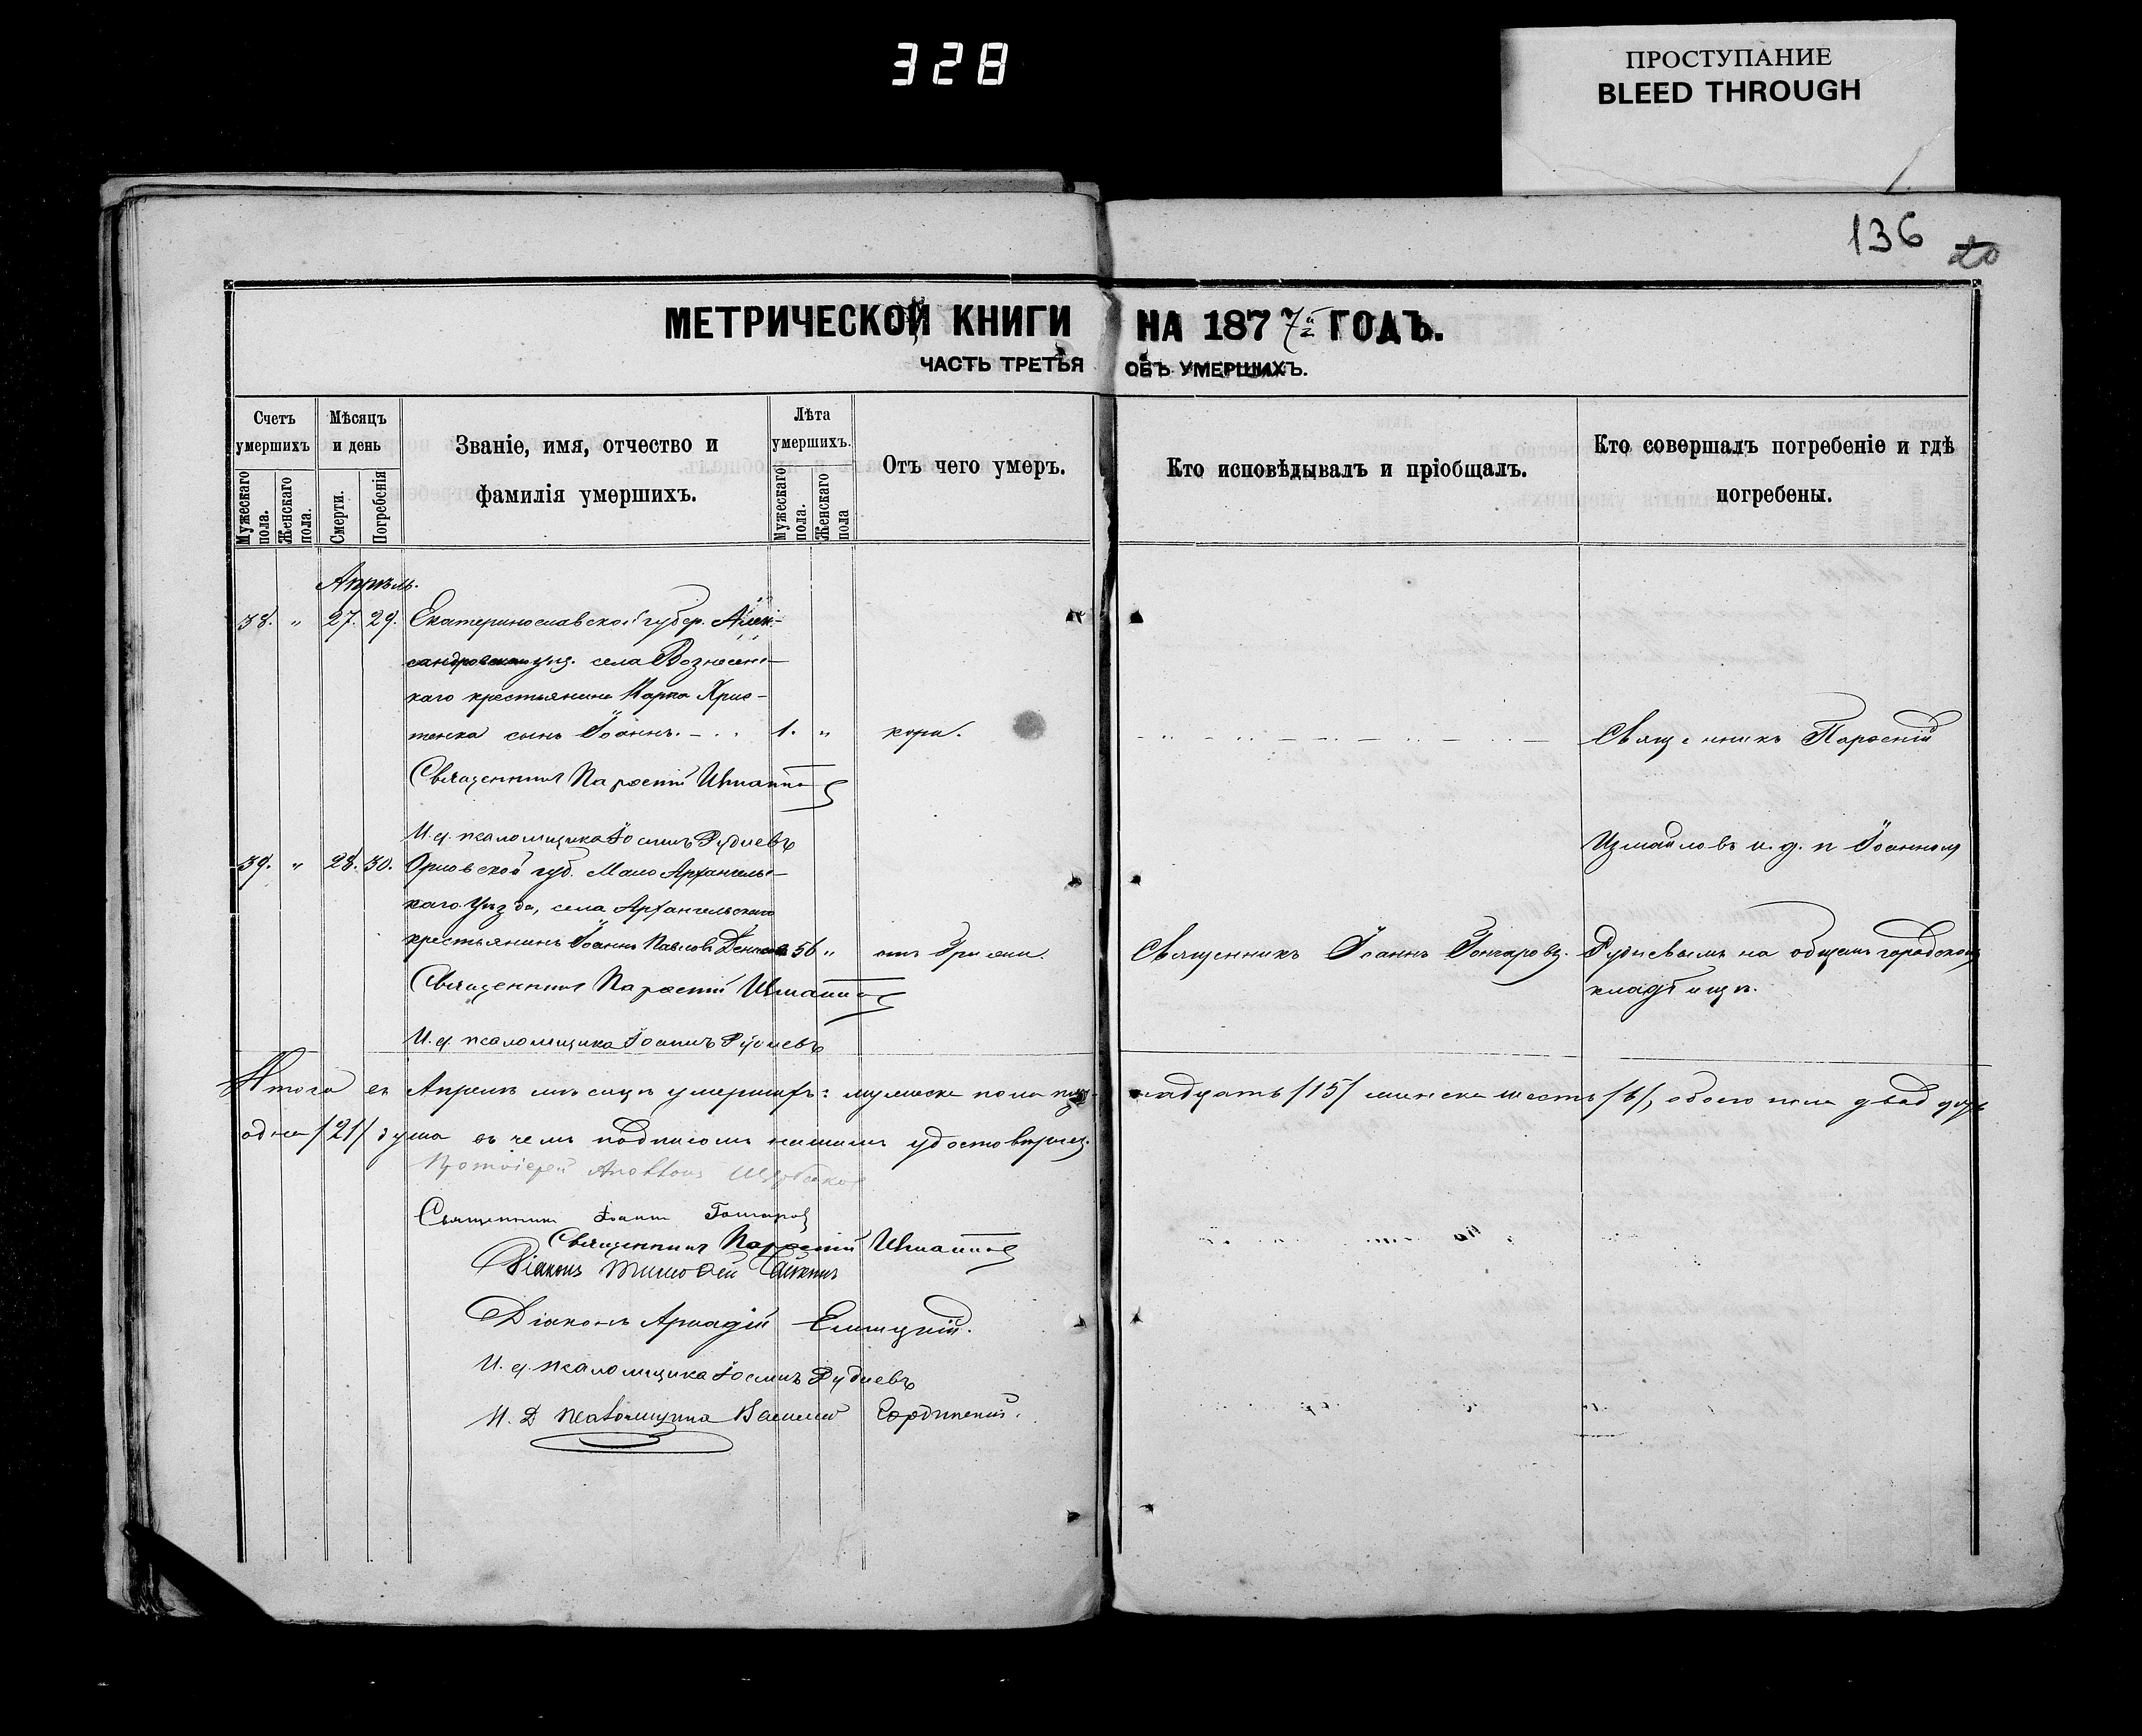 328
ПРОСТУПАНИЕ
BLEED THROUGH
136
20
МЕТРИЧЕСКОЙ КНИГИ НА 1877й ГОДЪ.
ЧАСТЬ ТРЕТЬЯ ОБЪ УМЕРШИХЪ.
Счетъ умершихъ
Мужескаго пола.
Женскаго пола.
Мѣсяцъ и день
Смерти.
Погребенія
Званіе, имя, отчество и
фамилія умершихъ.
Лѣта умершихъ.
Мужескаго пола.
Женскаго пола
Отъ чего умеръ.
Кто исповѣдывалъ и пріобщалъ.
Кто совершалъ погребеніе и гдѣ
погребены.
Апрѣль.
38. " 27. 29. Екатеринославской губер. Алек-
сандровскаго уѣз. села Вознесенс-
каго крестьянина Марка Хрис-
тенка сынъ Іоаннъ. 1. " кори. Священникъ Парѳеній
Священникъ Парѳеній Измаиловъ
И. д. псаломщика Іоаннъ Рудневъ
Измаиловъ и. д. п Іоанномъ
39. " 28. 30. Орловской губ. Мало Архангельс-
каго уѣзда, села Архангельскаго
крестьянинъ Іоаннъ Павловъ 56 " отъ Священникъ Іоаннъ Гончаровъ. Рудневымъ на общемъ городскомъ
кладбищѣ.
Священникъ Парѳеній Измаиловъ
И. д. псаломщика Іоаннъ Рудневъ
Итого въ Апрелѣ мѣсяцѣ умершихъ: мужеска пола пят-надцать /15/ женска шесть /6/, обоего пола двадцать
одна /21/ душа въ чемъ подписомъ нашимъ удостовѣряемъ.
Протоіерей
Священникъ Іоаннъ Гончаровъ
Священникъ Парѳеній Измаиловъ
Діаконъ Тимоѳей
Діаконъ Аркадій Елицкій.
И. д. псаломщика Іоаннъ Рудневъ
И. Д псаломщика Василій